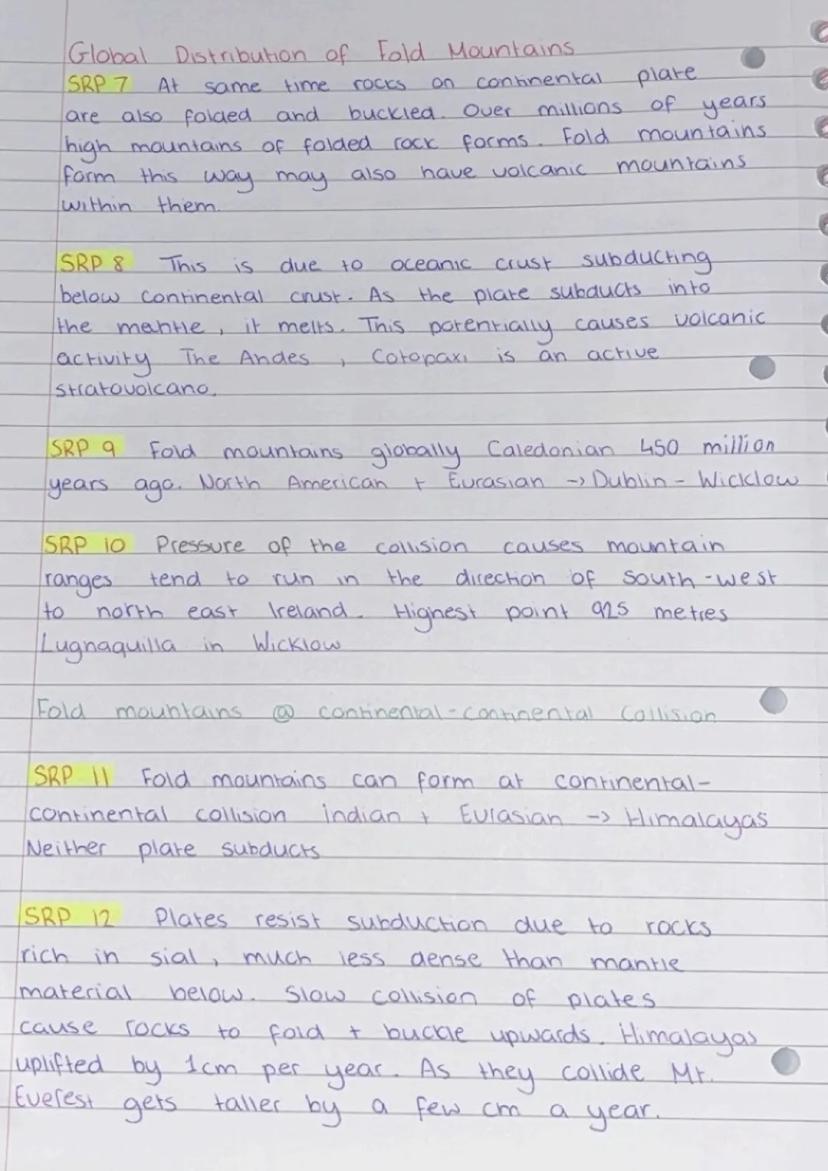 Global Distribution of Fold Mountains
SRP 7 At same time rocks on continental plate
are also folded and buckled. Over millions of years
high mountains of folded rock forms. Fold mountains
form this way may also have volcanic mountains
within them.
SRP 8 This is due to oceanic crust subducting
below continental crust. As the plate subducts into
the mantle, it melts. This potentially causes volcanic
activity The Andes, Cotopaxi is an active
stratovolcano.
SRP 9 Fold mountains globally Caledonian 450 million
years ago. North American + Eurasian → Dublin - Wicklow
SRP 10 Pressure of the collision causes mountain
ranges tend to run in the direction of south-west
to north east Ireland. Highest point 925 metres
Lugnaquilla in Wicklow
Fold mountains @ continental-continental Collision
SRP 11 Fold mountains can form at continental-
continental collision Indian + Eurasian → Himalayas
Neither plate subducts
SRP 12 Plates resist subduction due to rocks
rich in sial, much less dense than mantle
material below. Slow collision of plates
cause rocks to fold + buckle upwards. Himalayas
uplifted by 1cm per year. As they collide Mt.
Everest gets taller by a few cm a year.